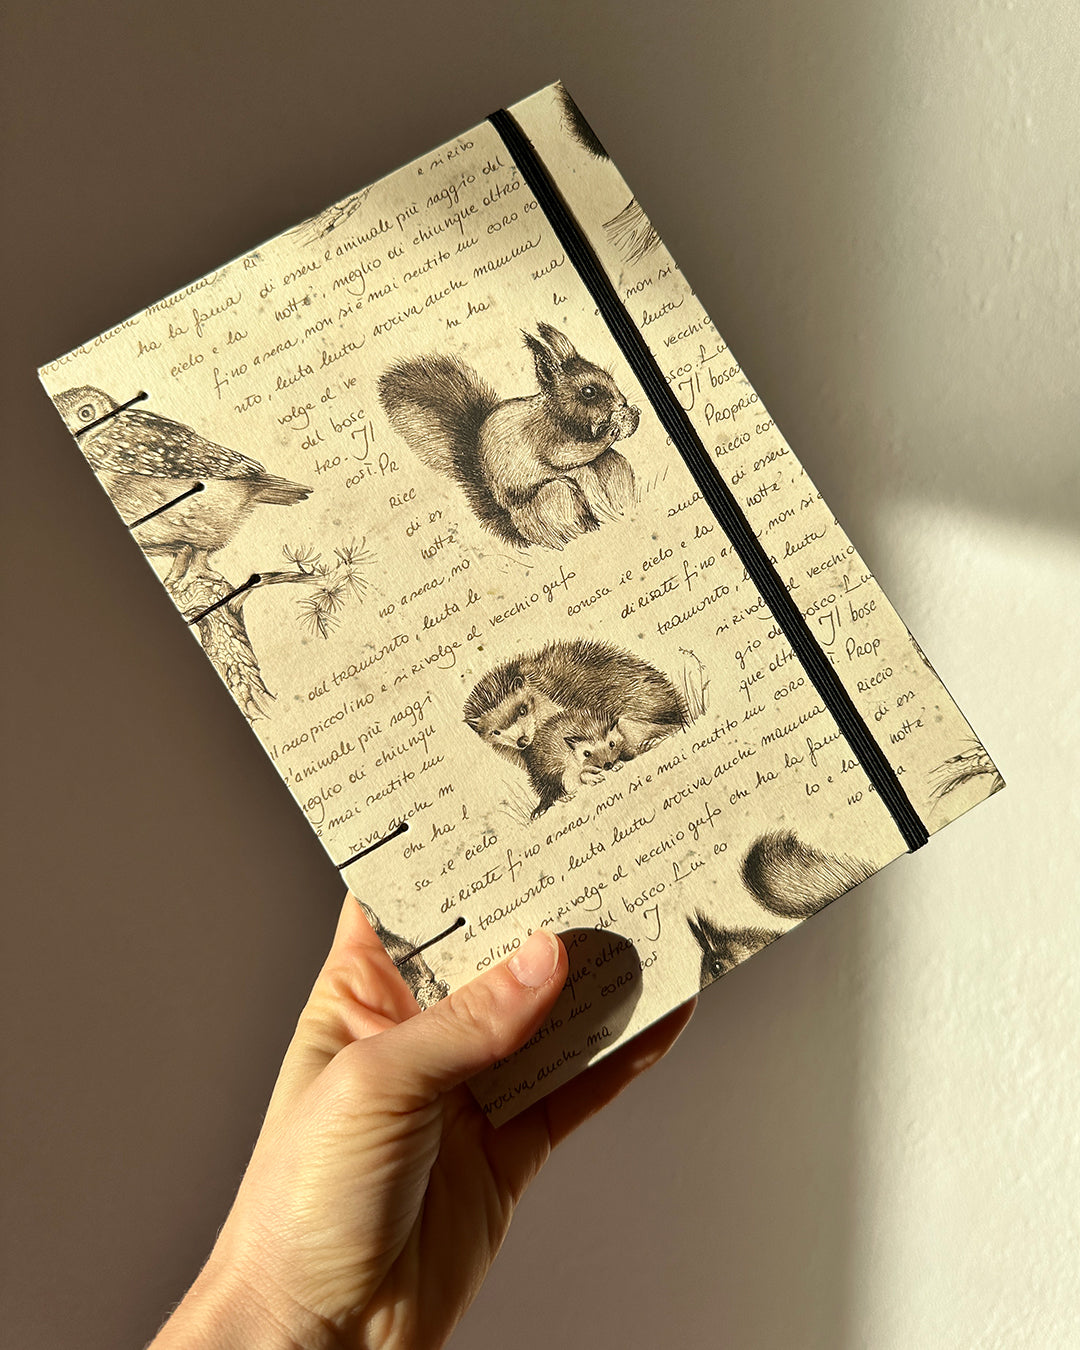 e si rivo
è animale più saggio del
di essere meglio di chiunque altro.
ha la fama notte, non si è mai sentito un coro co
cielo e la
fino a sera, arriva anche mamma
nto, lenta lenta
ne ha lu
volge al ve
del bosc
tro. Il
così. Pr
Ricc
di es
notte
no a sera, no
del tramonto, lenta le
e si rivolge al vecchio gufo
il suo piccolino
è animale più saggi
meglio di chiunqu
è mai sentito un
riva anche m
che ha l
sa il cielo
di risate fino a sera, non si è mai sentito un coro
el tramonto, lenta lenta arriva anche mamma
colino e si rivolge al vecchio gufo che ha la fam
io del bosco. Lui co
que altro. Il
sentito un coro cos
arriva anche ma
non si è
lenta
vecchio
osco. Lu
Il bosco
Proprio
riccio con
di essere
notte, non si è
ama
conosa il cielo e la
di risate fino a
tramonto, lenta
si rivolge al vecchio
gio del bosco. Lu
que altro Il bosc
Prop
riccio
di ess
notte
lo e la
no a